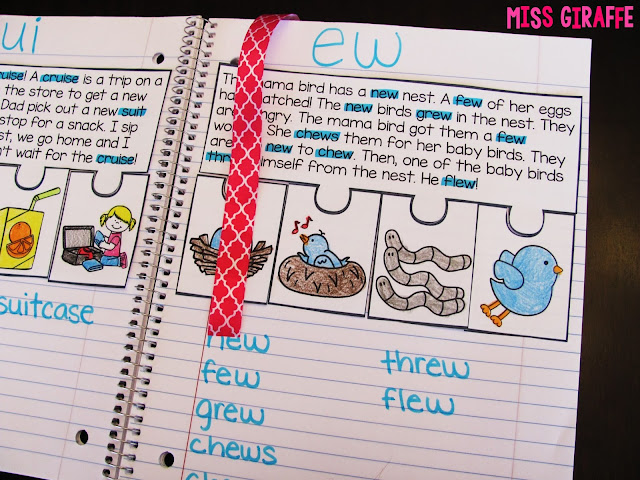 MISS GIRAFFE
ui
cruise! A cruise is a trip on a
the store to get a new
Dad pick out a new suit
stop for a snack. I sip
we go home and I
wait for the cruise!
suitcase
ew
mama bird has a new nest. A few of her eggs
hatched! The new birds grew in the nest. They
The mama bird got them a few
She chews them for her baby birds. They
new to chew. Then, one of the baby birds
himself from the nest. He flew!
new
few
grew
chews
threw
flew